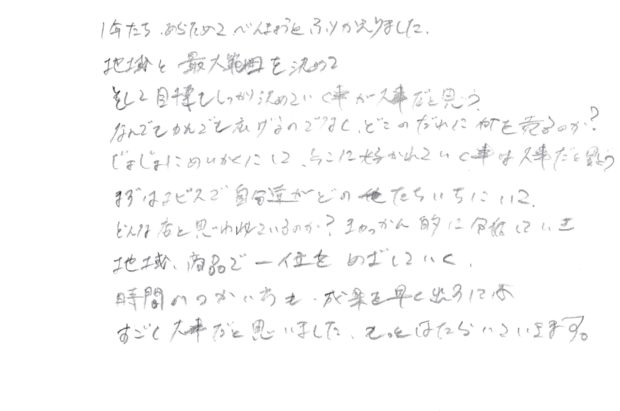 1年たち、あらためて べんきょうと ふりかえりました。
地域と 最大範囲を 決めて
そして目標もしっかり決めていく事が大事だと思う。
なんでもかれでも広げるのでなく、どこのだれに何を売るのか?
じょじょにめいかくにして、そこに好かれていく事は大事だと思う
まずはエビスで自分達がどの たちいちにいて、
どんな店と思われているのか? きゃっかん的に 分析していき
地域、商品で 一位を めざしていく。
時間のつかいちも、成果を早く出すには
すごく大事だと思いました、もっとはたらいていきます。